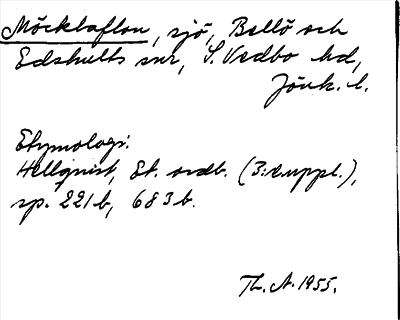 Möcklaflon, sjö, Bellö och
Edshults snr, S. Vedbo hd,
Jönk. l.
Etymologi:
Hellquist, Et. ordb. (3:e uppl.),
sp. 221b, 683b.
Th. A. 1955.